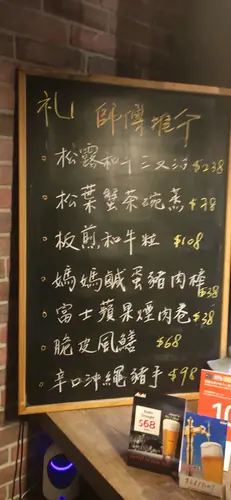 礼 師傅推介
松露和牛三文治 $238
松葉蟹茶碗蒸 $78
板煎和牛粒 $108
媽媽鹹蛋豬肉棒 $38
富士蘋果煙肉卷 $38
脆皮風鱔 $68
辛口沖繩豬手 $98
$68
10